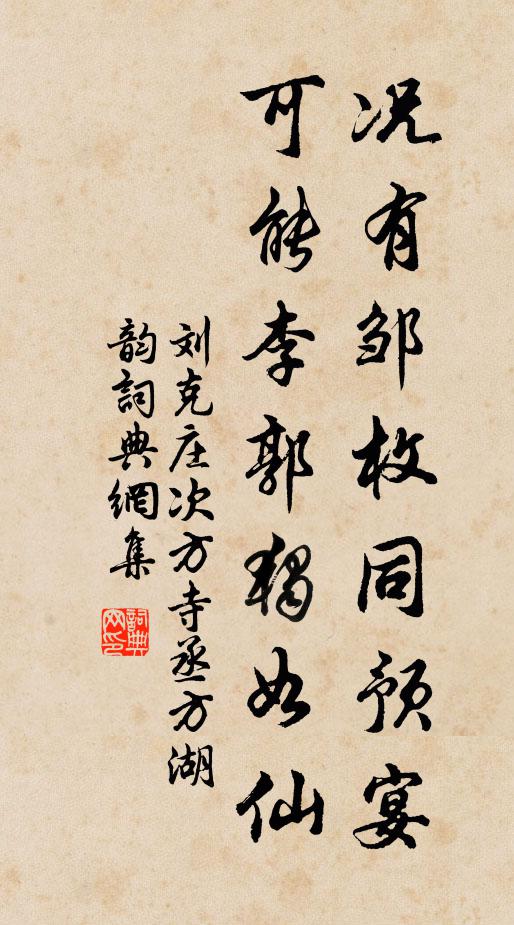 况有邹枚同预宴
可能李郭独如仙
刘克庄次方寺丞方湖
韵詞典網集
詞典網印